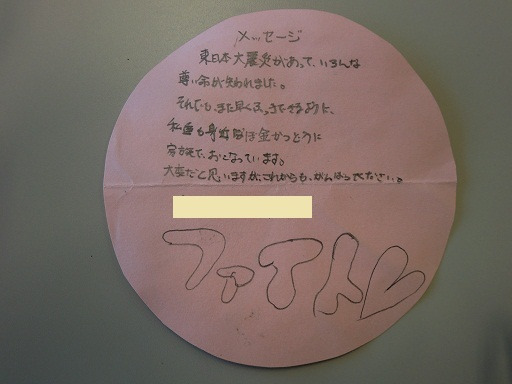 メッセージ
東日本大震災があって、いろんな
尊い命が失われました。
それでも、また早くふっきできるように、
私達も身近な募金かつどうに
学校で、おこなっています。
大変だと思いますが、これからも、がんばってください。
ファイト